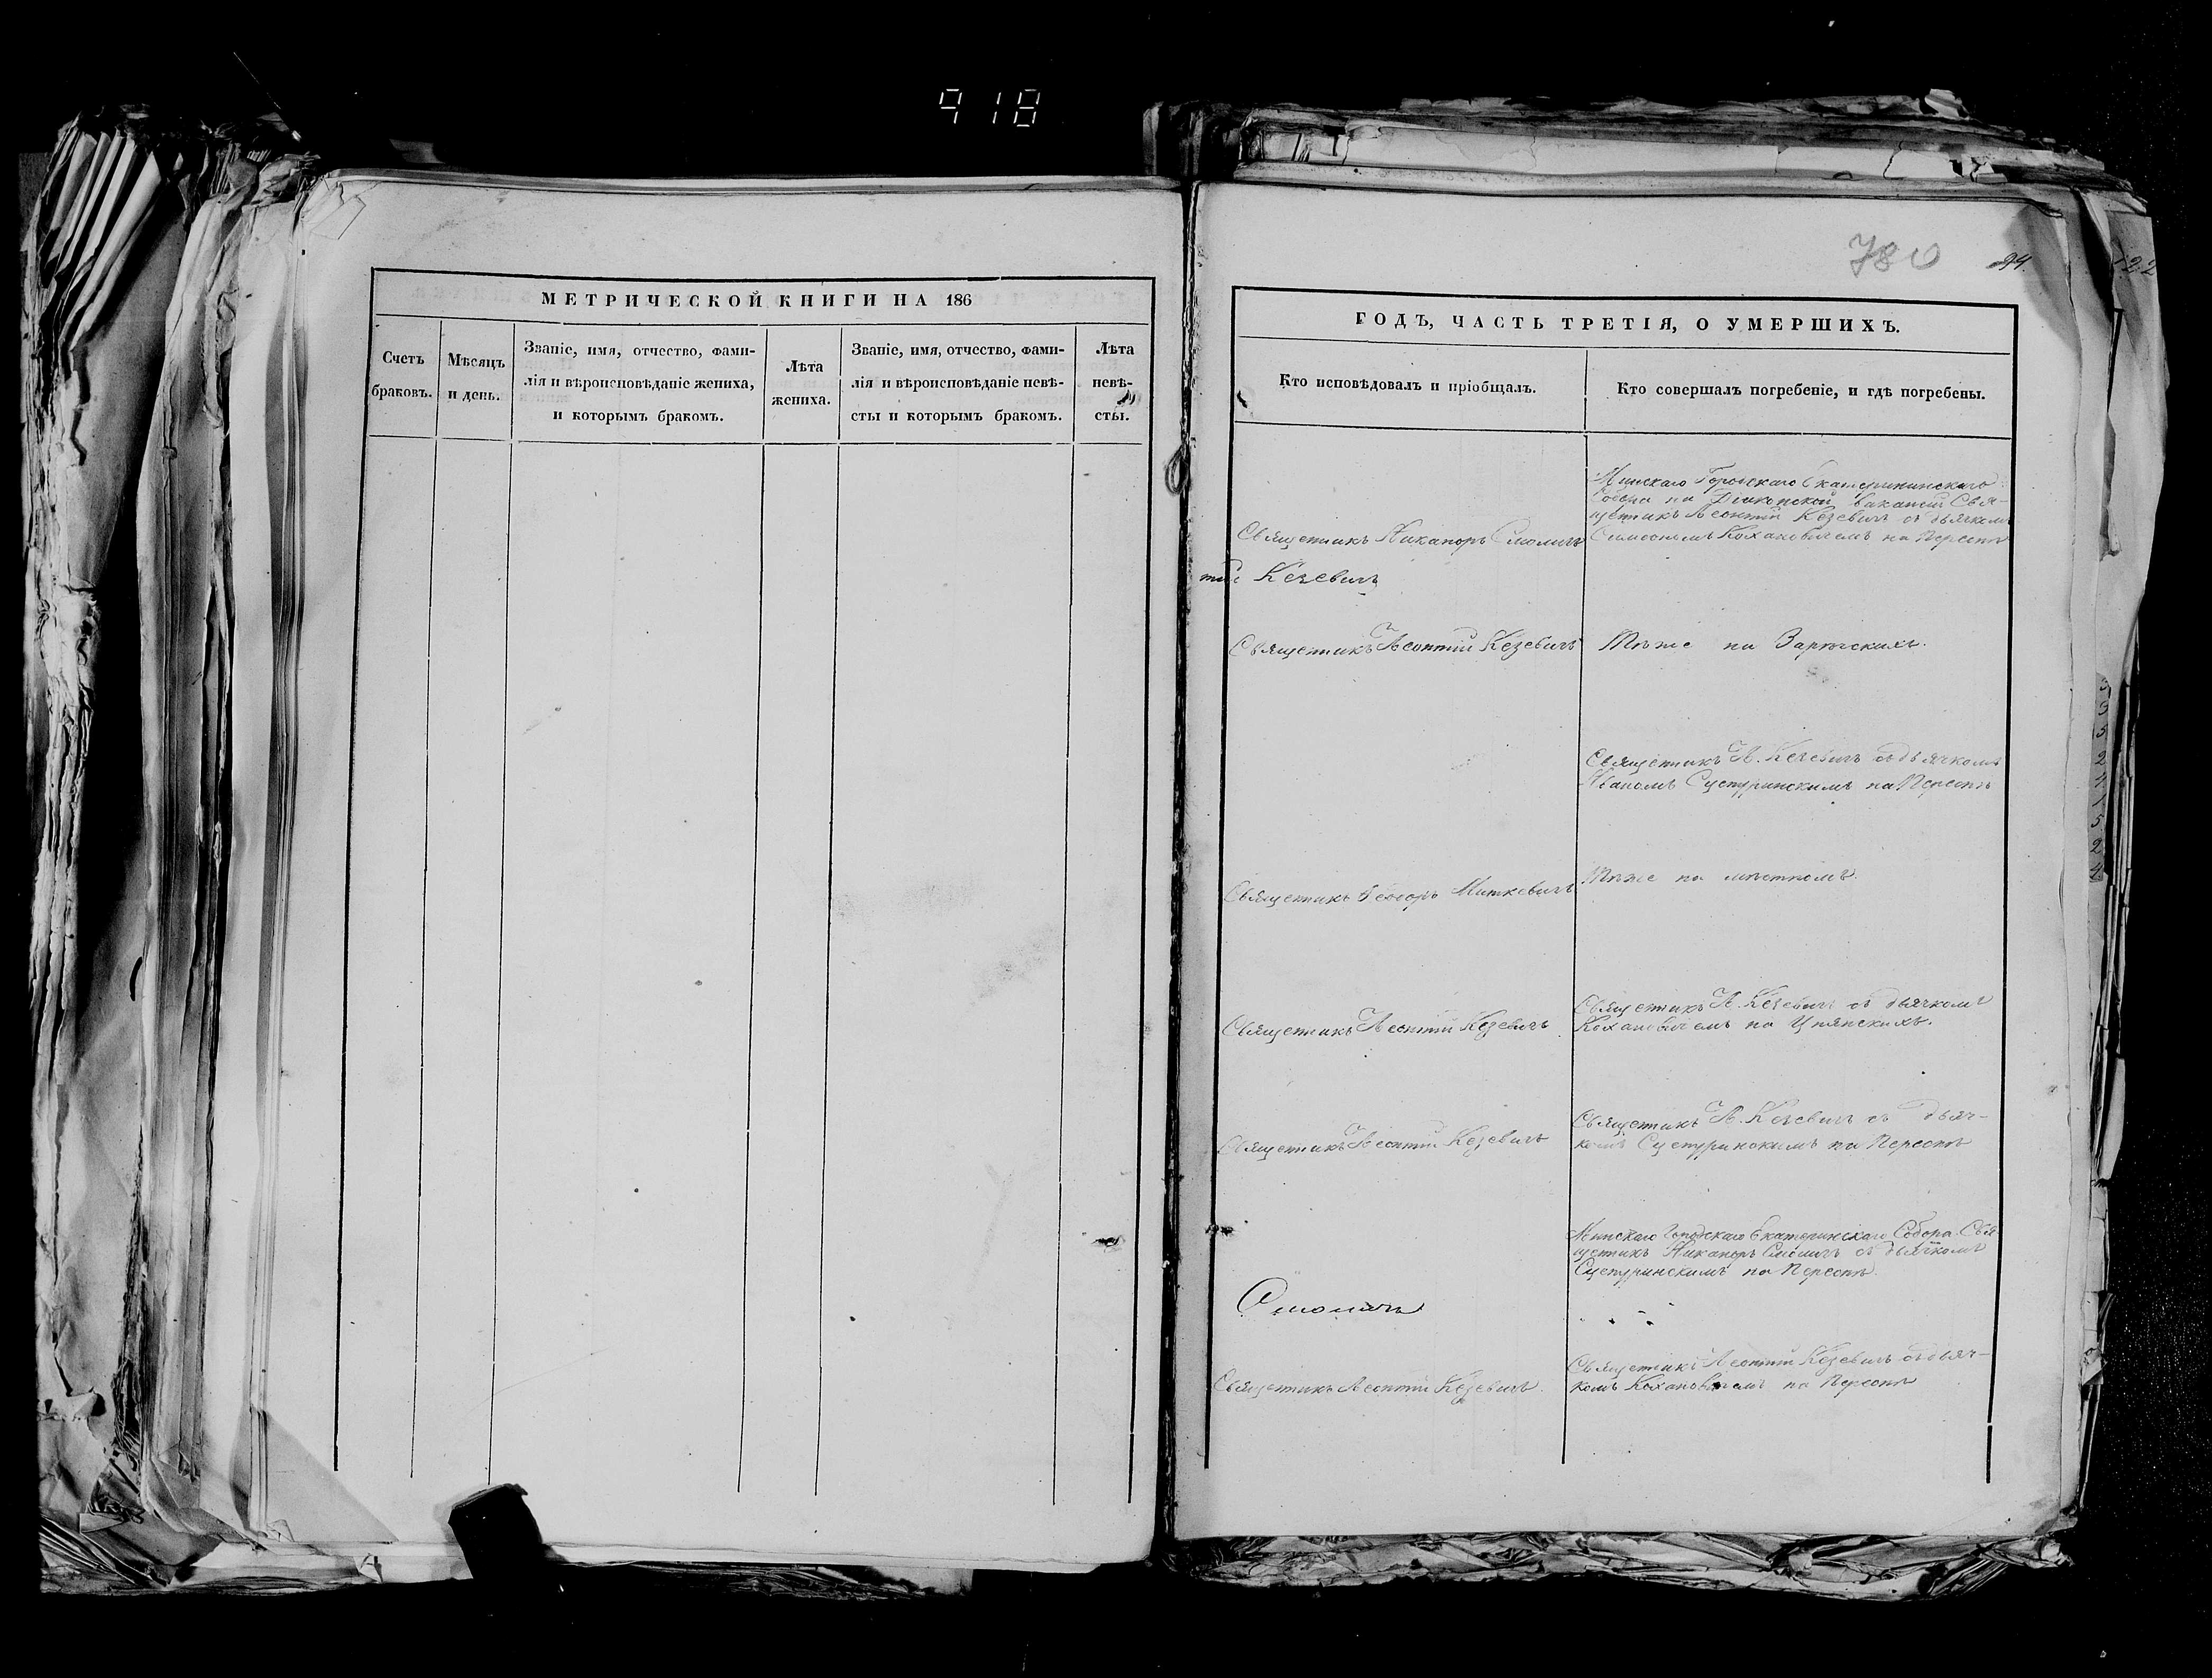 918
МЕТРИЧЕСКОЙ КНИГИ НА 186
Счетъ
браковъ.
Мѣсяцъ
и день.
Званіе, имя, отчество, фами-
лія и вѣроисповѣданіе жениха,
и которымъ бракомъ.
Лѣта
жениха.
Званіе, имя, отчество, фами-
лія и вѣроисповѣданіе невѣ-
сты и которымъ бракомъ.
Лѣта
невѣ-
сты.
780
94.
122
ГОДЪ, ЧАСТЬ ТРЕТІЯ, О УМЕРШИХЪ.
Кто исповѣдовалъ и пріобщалъ.
Кто совершалъ погребеніе, и гдѣ погребены.
Минскаго Городскаго Екатерининскаго
Собора на Діаконской вакансіи Свя-
щенникъ Леонтій Кезевичъ съ дьячкомъ
Священникъ Никаноръ Смоличъ
Симеономъ Кохановичемъ на Переспѣ
тій Кезевичъ
Священникъ Леонтій Кезевичъ
Тѣже на Зарѣчскихъ.
Священникъ Л. Кезевичъ съ дьячкомъ
Иваномъ Сцепуринскимъ на Переспѣ
Священникъ Ѳеодоръ Миткевичъ
Тѣже на мѣстномъ.
Священникъ Леонтій Кезевичъ
Священникъ Л. Кезевичъ съ дьячкомъ
Кохановичемъ на Цнянскихъ.
Священникъ Леонтій Кезевичъ
Священникъ Л. Кезевичъ съ дьяч-
комъ Сцепуринскимъ на Переспѣ
Минскаго Городскаго Екатеринскаго Собора Свя
щенникъ Никаноръ Смоличъ съ дьячкомъ
Сцепуринскимъ на Переспѣ.
Смоличъ
Священникъ Леонтій Кезевичъ.
Священникъ Леонтій Кезевичъ съ дьяч-
комъ Кохановичемъ на Переспѣ